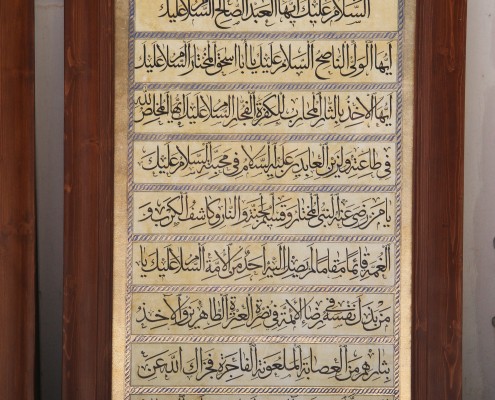 السلام عليك ايها العبد الصالح السلام عليك
ايها الولي الناصح السلام عليك يا ابا اسحق المختار السلام عليك
ايها الآخذ بالثار المحارب للكفرة الفجار السلام عليك ايها المخلص لله
في طاعته ولزين العابدين عليه السلام في محبته السلام عليك
يا من رضي عنه النبي المختار وقسيم الجنة والنار وكاشف الكرب و
الغمة قائما مقاما لم يصل اليه احد من الامة السلام عليك يا
من بذل نفسه في رضاء الائمة في نصرة العترة الطاهرين والاخذ
بثارهم من العصابة الملعونة الفاجرة فجزاك الله عن